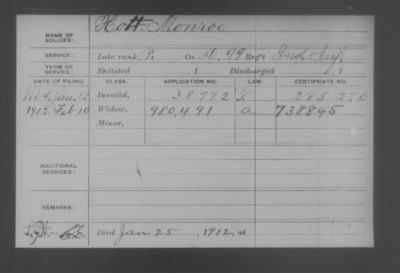 Hott Monroe
NAME OF SOLDIER:
SERVICE: Late rank, P. Co. D, 99 Reg't Ind. Inf.
TERM OF SERVICE: Enlisted , 1 Discharged , 1
DATE OF FILING. APPLICATION NO. LAW. CERTIFICATE NO.
Jan. 12 Invalid, 38772
1912 Feb 10 Widow, 980,491 a 738845
Minor,
ADDITIONAL SERVICES:
REMARKS:
Died Jan 25 , 1912, at